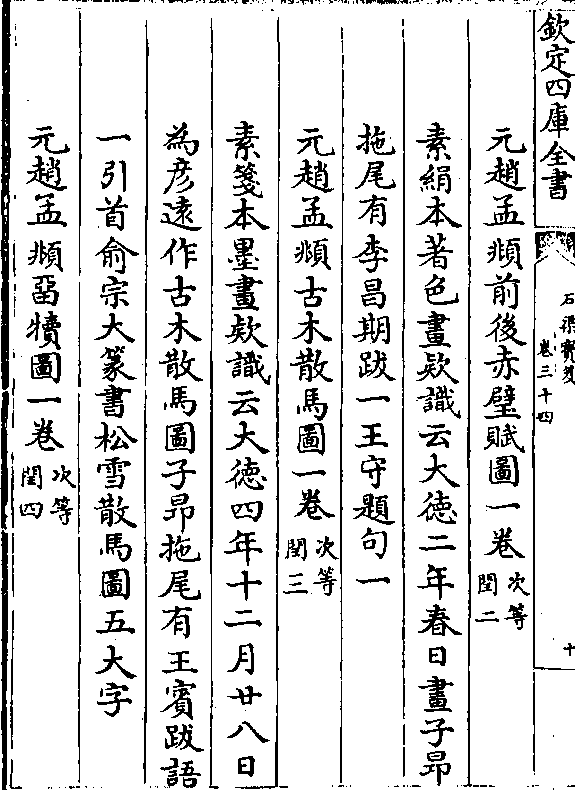 欽定四庫全書
石渠寳笈
卷三十四
十
元趙孟頫前後赤壁賦圖一卷 次等 閏二
素絹本著色畫欵識云大德二年春日畫子昂
拖尾有李昌期跋一王守題句一
元趙孟頫古木散馬圖一卷 次等 閏三
素箋本墨畫欵識云大德四年十二月廿八日
為彦遠作古木散馬圖子昂拖尾有王賓跋語
一引首俞宗大篆書松雪散馬圖五大字
元趙孟頫留犢圖一卷 次等 閏四